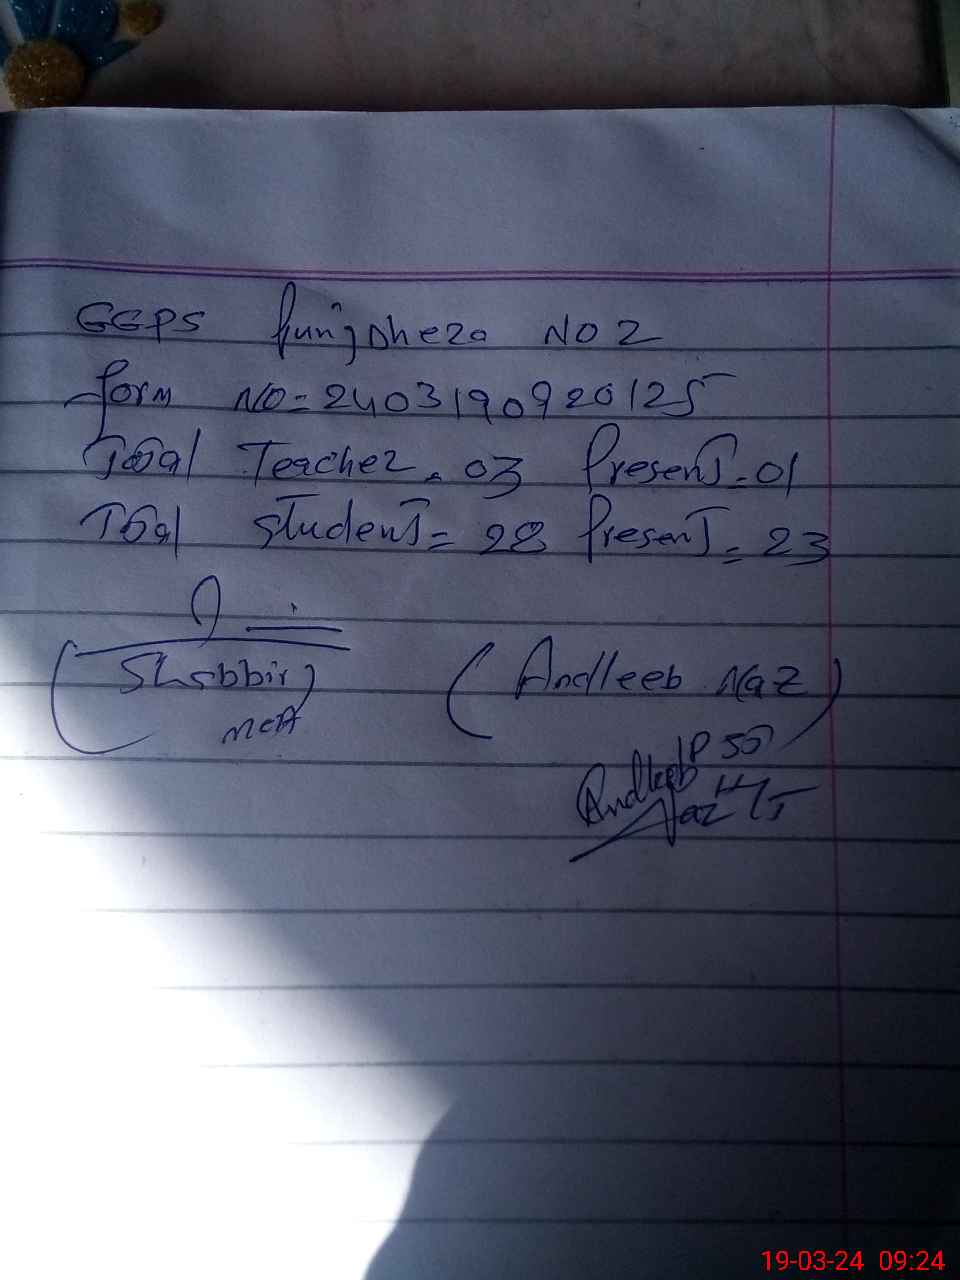 GGPS Punj Dhera NO 2
form NO = 2403190920125
Total Teacher = 03 Present = 01
Total Student = 28 Present = 23
(Shabbir)
MEA
(Andleeb Naz)
Andleeb
Naz
19-03-24 09:24